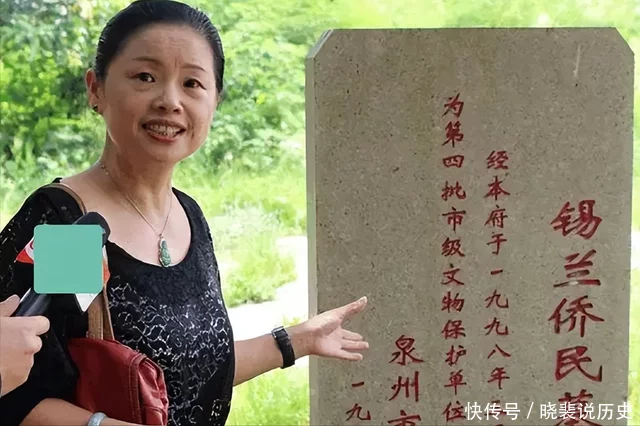 锡兰侨民墓
经本府于一九九八年
为第四批市级文物保护单位
泉州市
一九
快传号 / 晓裴说历史